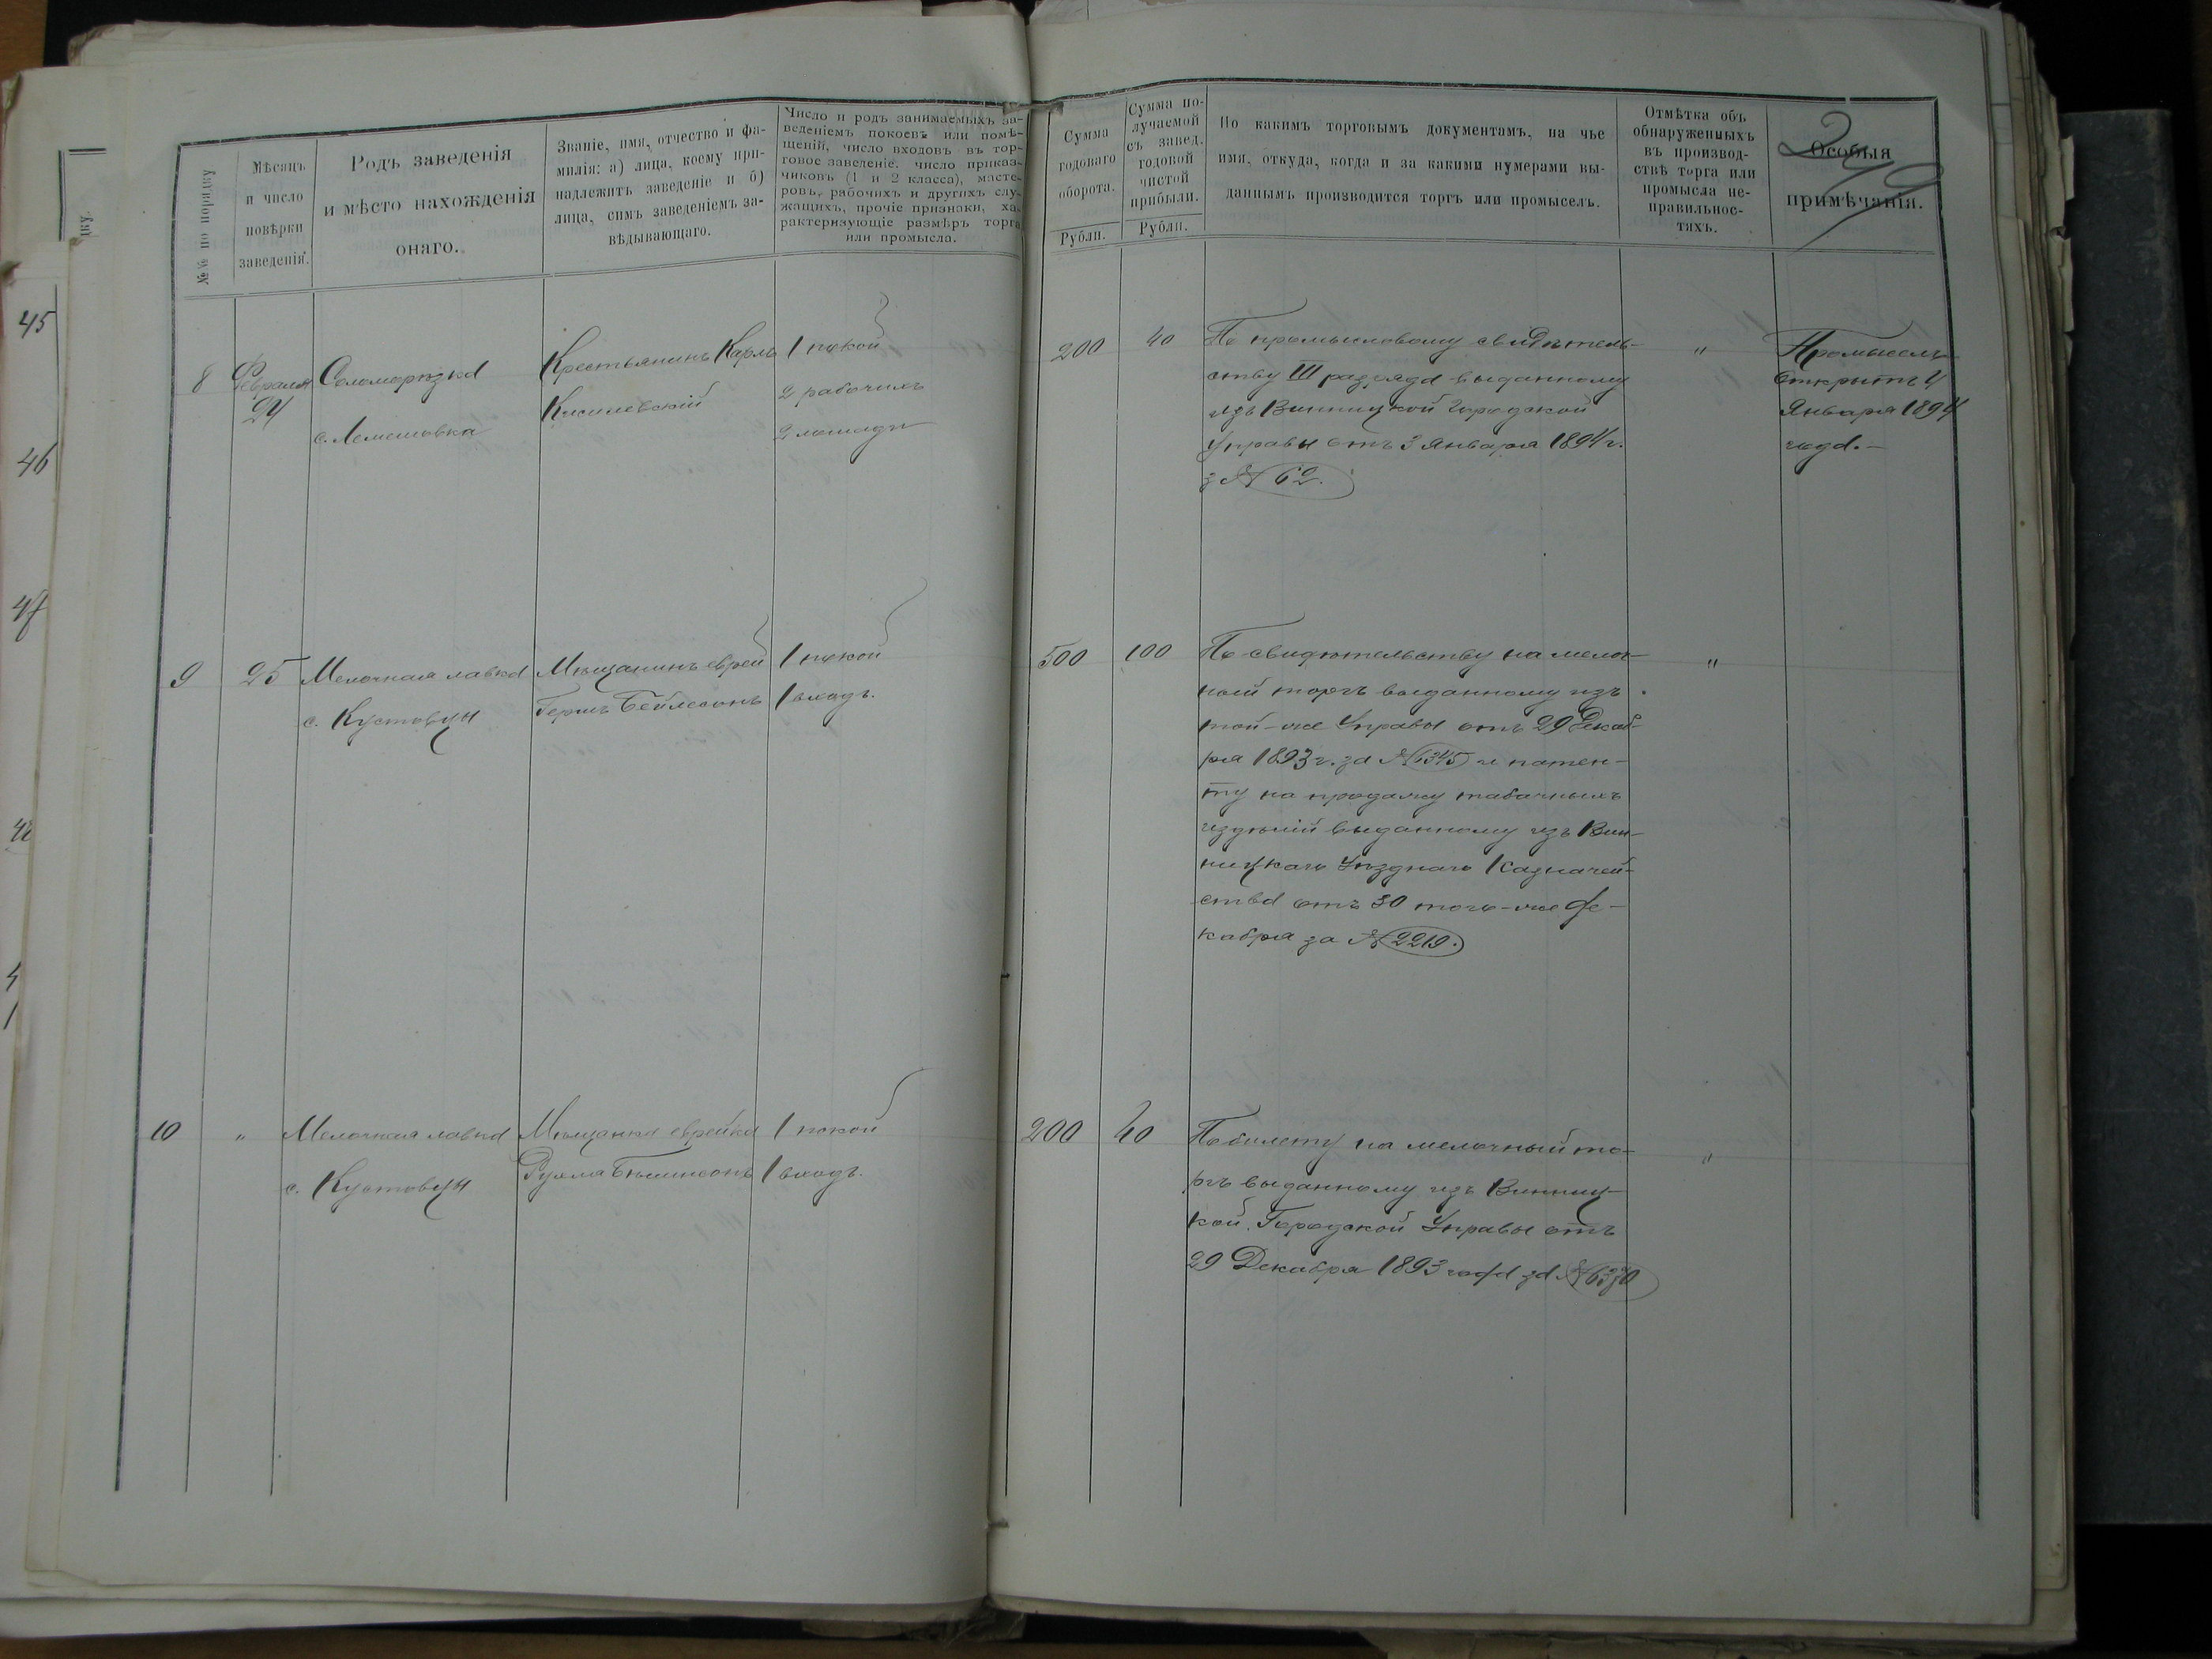 №№ по порядку
Мѣсяцъ
и число
повѣрки
заведенія.
Родъ заведенія
и мѣсто нахожденія
онаго.
Званіе, имя, отчество и фа-
милія: а) лица, коему при-
надлежитъ заведеніе и б)
лица, симъ заведеніемъ за-
вѣдывающаго.
Число и родъ занимаемыхъ за-
веденіемъ покоевъ или помѣ-
щеній, число входовъ въ тор-
говое заведеніе, число приказ-
чиковъ (1 и 2 класса), масте-
ровъ, рабочихъ и другихъ слу-
жащихъ, прочіе признаки, ха-
рактеризующіе размѣръ торга
или промысла.
Сумма
годоваго
оборота.
Рубли.
Сумма по-
лучаемой
съ завед.
годовой
чистой
прибыли.
Рубли.
По какимъ торговымъ документамъ, на чье
имя, откуда, когда и за какими нумерами вы-
даннымъ производится торгъ или промыселъ.
Отмѣтка объ
обнаруженныхъ
въ производ-
ствѣ торга или
промысла не-
правильнос-
тяхъ.
Особыя
примѣчанія.
8
Февраля
24
Соломорѣзка
с. Лемешовка
Крестьянинъ Карль
Кисилевскій
1 покой
2 рабочихъ
2 лошади
200
40
По промысловому свидѣтель-
ству III разряда выданному
изъ Винницкой Городской
Управы отъ 3 Января 1894 г.
з N 62.
"
Промыселъ
открытъ 4
Января 1894
года.-
9
25
Мелочная лавка
с. Кустовцы
Мѣщанинъ еврей
Гершъ Бейлесонъ
1 покой
1 входъ.
500
100
По свидѣтельству на мелоч-
ной торгъ выданному изъ
той-же Управы отъ 29 Декаб-
ря 1893 г. за N 6345 и патен-
ту на продажу табачныхъ
издѣлій выданному изъ Вин-
ницкаго Уѣзднаго Казначей-
ства отъ 30 того-же Де-
кабря за N 2219.
"
10
"
Мелочная лавка
с. Кустовцы
Мѣщанка еврейка
1 покой
1 входъ.
200
40
По билету на мелочный то-
ргъ выданному изъ Винниц-
кой Городской Управы отъ
29 Декабря 1893 года за N
"
45
46
47